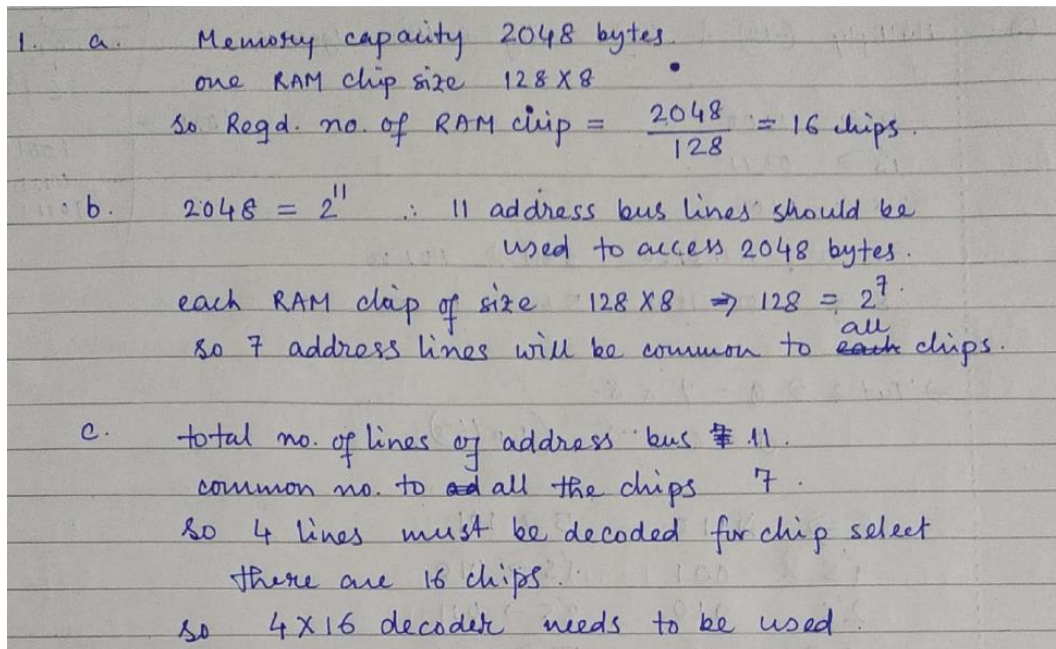 1. a. Memory capacity 2048 bytes.
one RAM chip size 128 X 8
so Reqd. no. of RAM chip = 2048/128 = 16 chips.
b. 2048 = 2^11 ∴ 11 address bus lines should be
used to access 2048 bytes.
each RAM chip of size 128 X 8 ⇒ 128 = 2^7.
so 7 address lines will be common to all chips.
c. total no. of lines of address bus 11.
common no. to all the chips 7.
so 4 lines must be decoded for chip select
there are 16 chips.
so 4 X 16 decoder needs to be used.